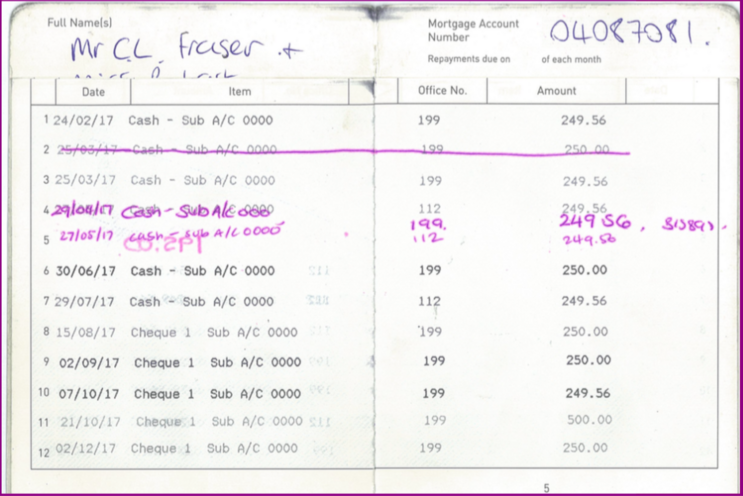 Full Name(s)
Mortgage Account Number 04087081.
Mr C.L. Fraser +
Repayments due on of each month
Date Item Office No. Amount
1 24/02/17 Cash - Sub A/C 0000 199 249.56
2 25/03/17 Cash - Sub A/C 0000 199 250.00
3 25/03/17 Cash - Sub A/C 0000 199 249.56
4 29/04/17 Cash - Sub A/C 000 112 249.56
199. 249 56.
5 27/05/17 cash - sub A/C 0000 112 249.56
6 30/06/17 Cash - Sub A/C 0000 199 250.00
7 29/07/17 Cash - Sub A/C 0000 112 249.56
8 15/08/17 Cheque 1 Sub A/C 0000 199 250.00
9 02/09/17 Cheque 1 Sub A/C 0000 199 250.00
10 07/10/17 Cheque 1 Sub A/C 0000 199 249.56
11 21/10/17 Cheque 1 Sub A/C 0000 199 500.00
12 02/12/17 Cheque 1 Sub A/C 0000 199 250.00
5